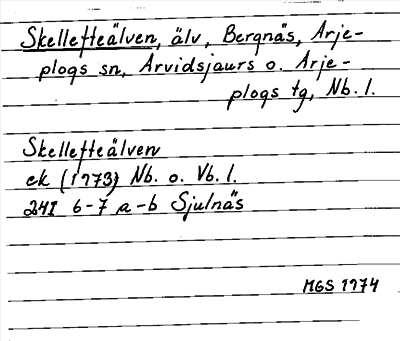 Skellefteälven, älv, Bergnäs, Arje-
plogs sn, Arvidsjaurs o. Arje-
plogs tg, Nb. l.
Skellefteälven
ek (1973) Nb. o. Vb. l.
24I 6-7 a-b Sjulnäs
MGS 1974